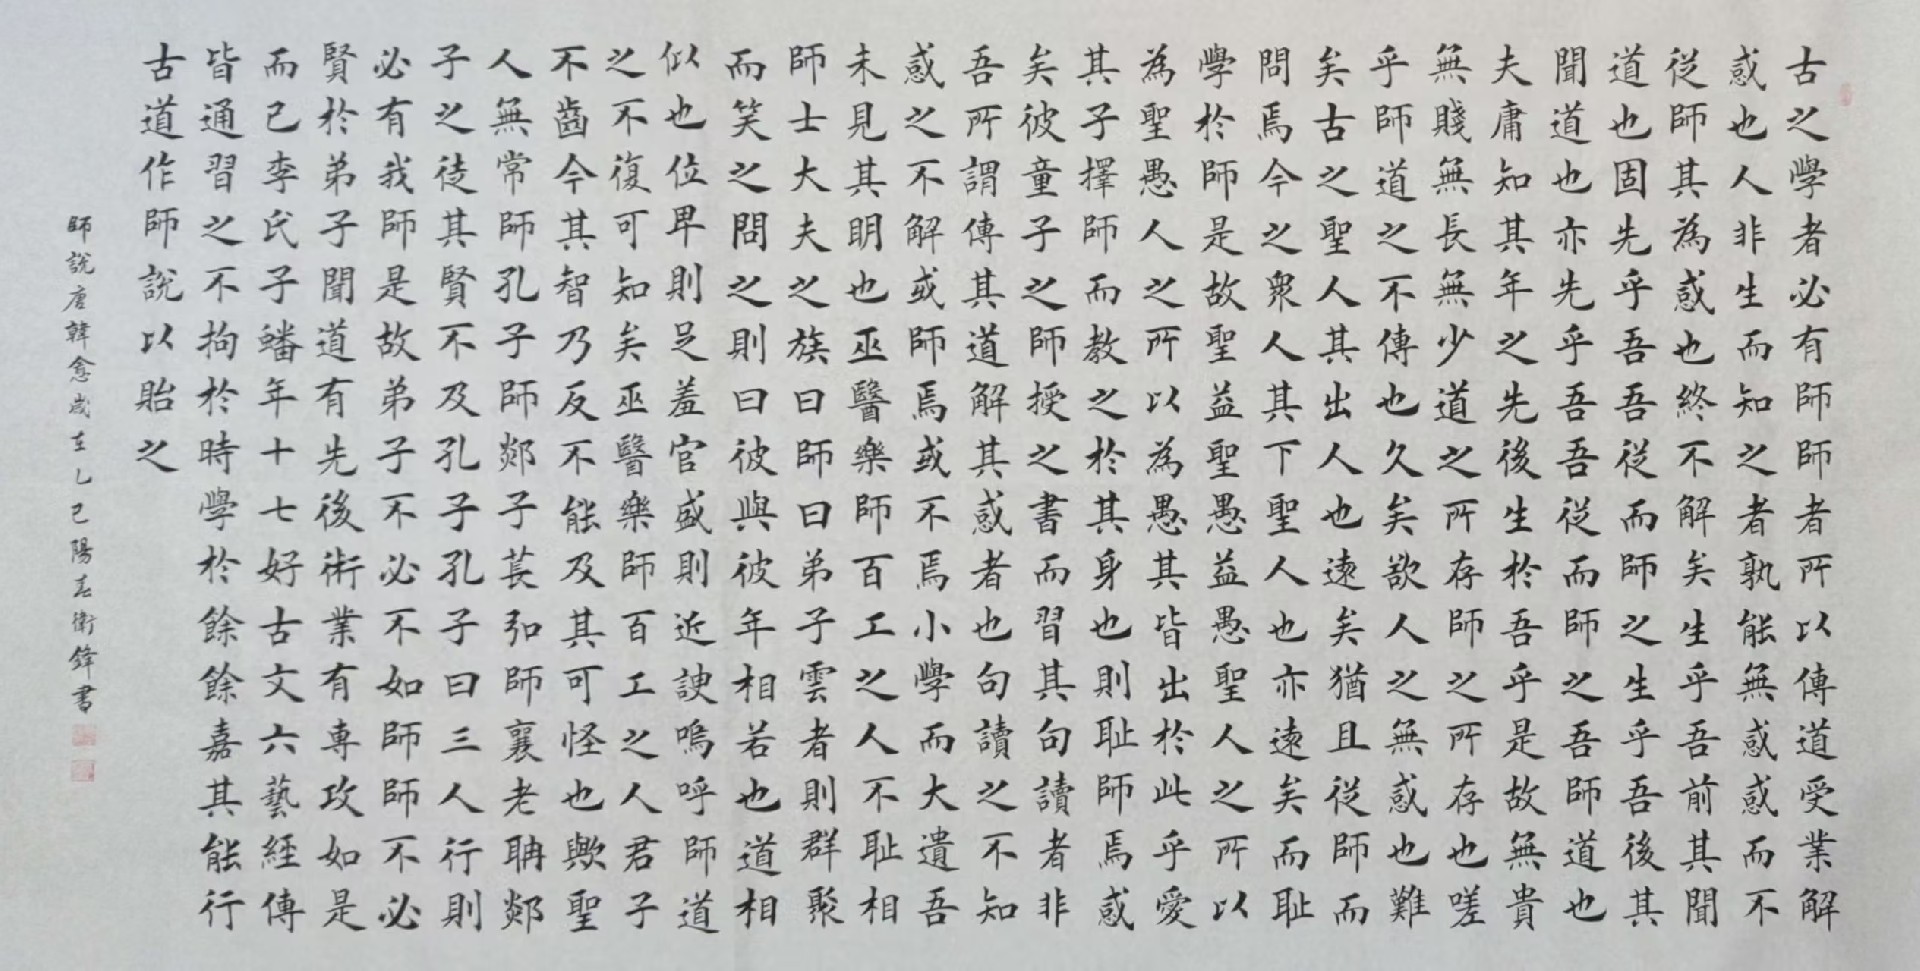 古之學者必有師師者所以傳道受業解
惑也人非生而知之者孰能無惑惑而不
從師其為惑也終不解矣生乎吾前其聞
道也固先乎吾吾從而師之生乎吾後其
聞道也亦先乎吾吾從而師之吾師道也
夫庸知其年之先後生於吾乎是故無貴
無賤無長無少道之所存師之所存也嗟
乎師道之不傳也久矣欲人之無惑也難
矣古之聖人其出人也遠矣猶且從師而
問焉今之眾人其下聖人也亦遠矣而耻
學於師是故聖益聖愚益愚聖人之所以
為聖愚人之所以為愚其皆出於此乎愛
其子擇師而教之於其身也則耻師焉惑
矣彼童子之師授之書而習其句讀者非
吾所謂傳其道解其惑者也句讀之不知
惑之不解或師焉或不焉小學而大遺吾
未見其明也巫醫樂師百工之人不耻相
師士大夫之族曰師曰弟子雲者則群聚
而笑之問之則曰彼與彼年相若也道相
似也位卑則足羞官盛則近諛嗚呼師道
之不復可知矣巫醫樂師百工之人君子
不齒今其智乃反不能及其可怪也歟聖
人無常師孔子師郯子萇弘師襄老聃郯
子之徒其賢不及孔子孔子曰三人行則
必有我師是故弟子不必不如師師不必
賢於弟子聞道有先後術業有專攻如是
而已李氏子蟠年十七好古文六藝經傳
皆通習之不拘於時學於餘餘嘉其能行
古道作師說以貽之
師說唐韓愈歲在乙巳陽春衛鋒書